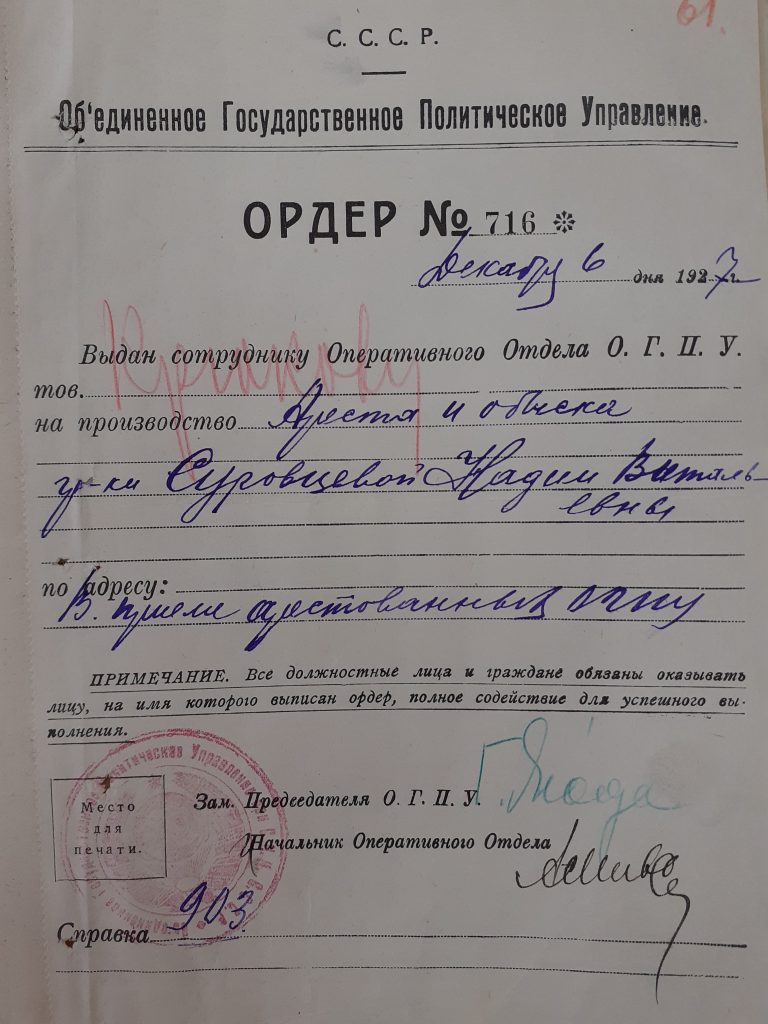 61.
С. С. С. Р.
Об'единенное Государственное Политическое Управление.
ОРДЕР № 716
Декабря 6 дня 1927 г.
Выдан сотруднику Оперативного Отдела О. Г. П. У.
тов.
на производство Ареста и обыска
гр-ки Суровцевой Надии Виталь-
евны
по адресу:
В. арестованных ОГПУ
ПРИМЕЧАНИЕ. Все должностные лица и граждане обязаны оказывать
лицу, на имя которого выписан ордер, полное содействие для успешного вы-
полнения.
Место
для
печати.
Зам. Председателя О. Г. П. У. Г. Ягода
Начальник Оперативного Отдела
Справка 903.